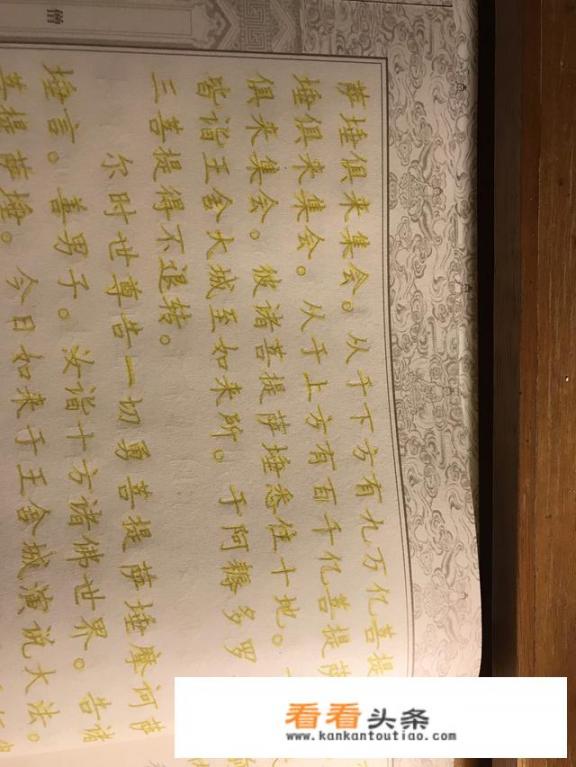 萨埵俱来集会。从于下方有九万亿菩提
埵俱来集会。从于上方有百千亿菩提萨
俱来集会。彼诸菩提萨埵悉住十地。一
皆诣王舍大城至如来所。于阿耨多罗
三菩提得不退转。
尔时世尊告一切勇菩提萨埵摩诃萨
埵言。善男子。汝诣十方诸佛世界。告诸
菩提萨埵。今日如来于王舍城演说大法。
看看头条
www.kankantoutiao.com